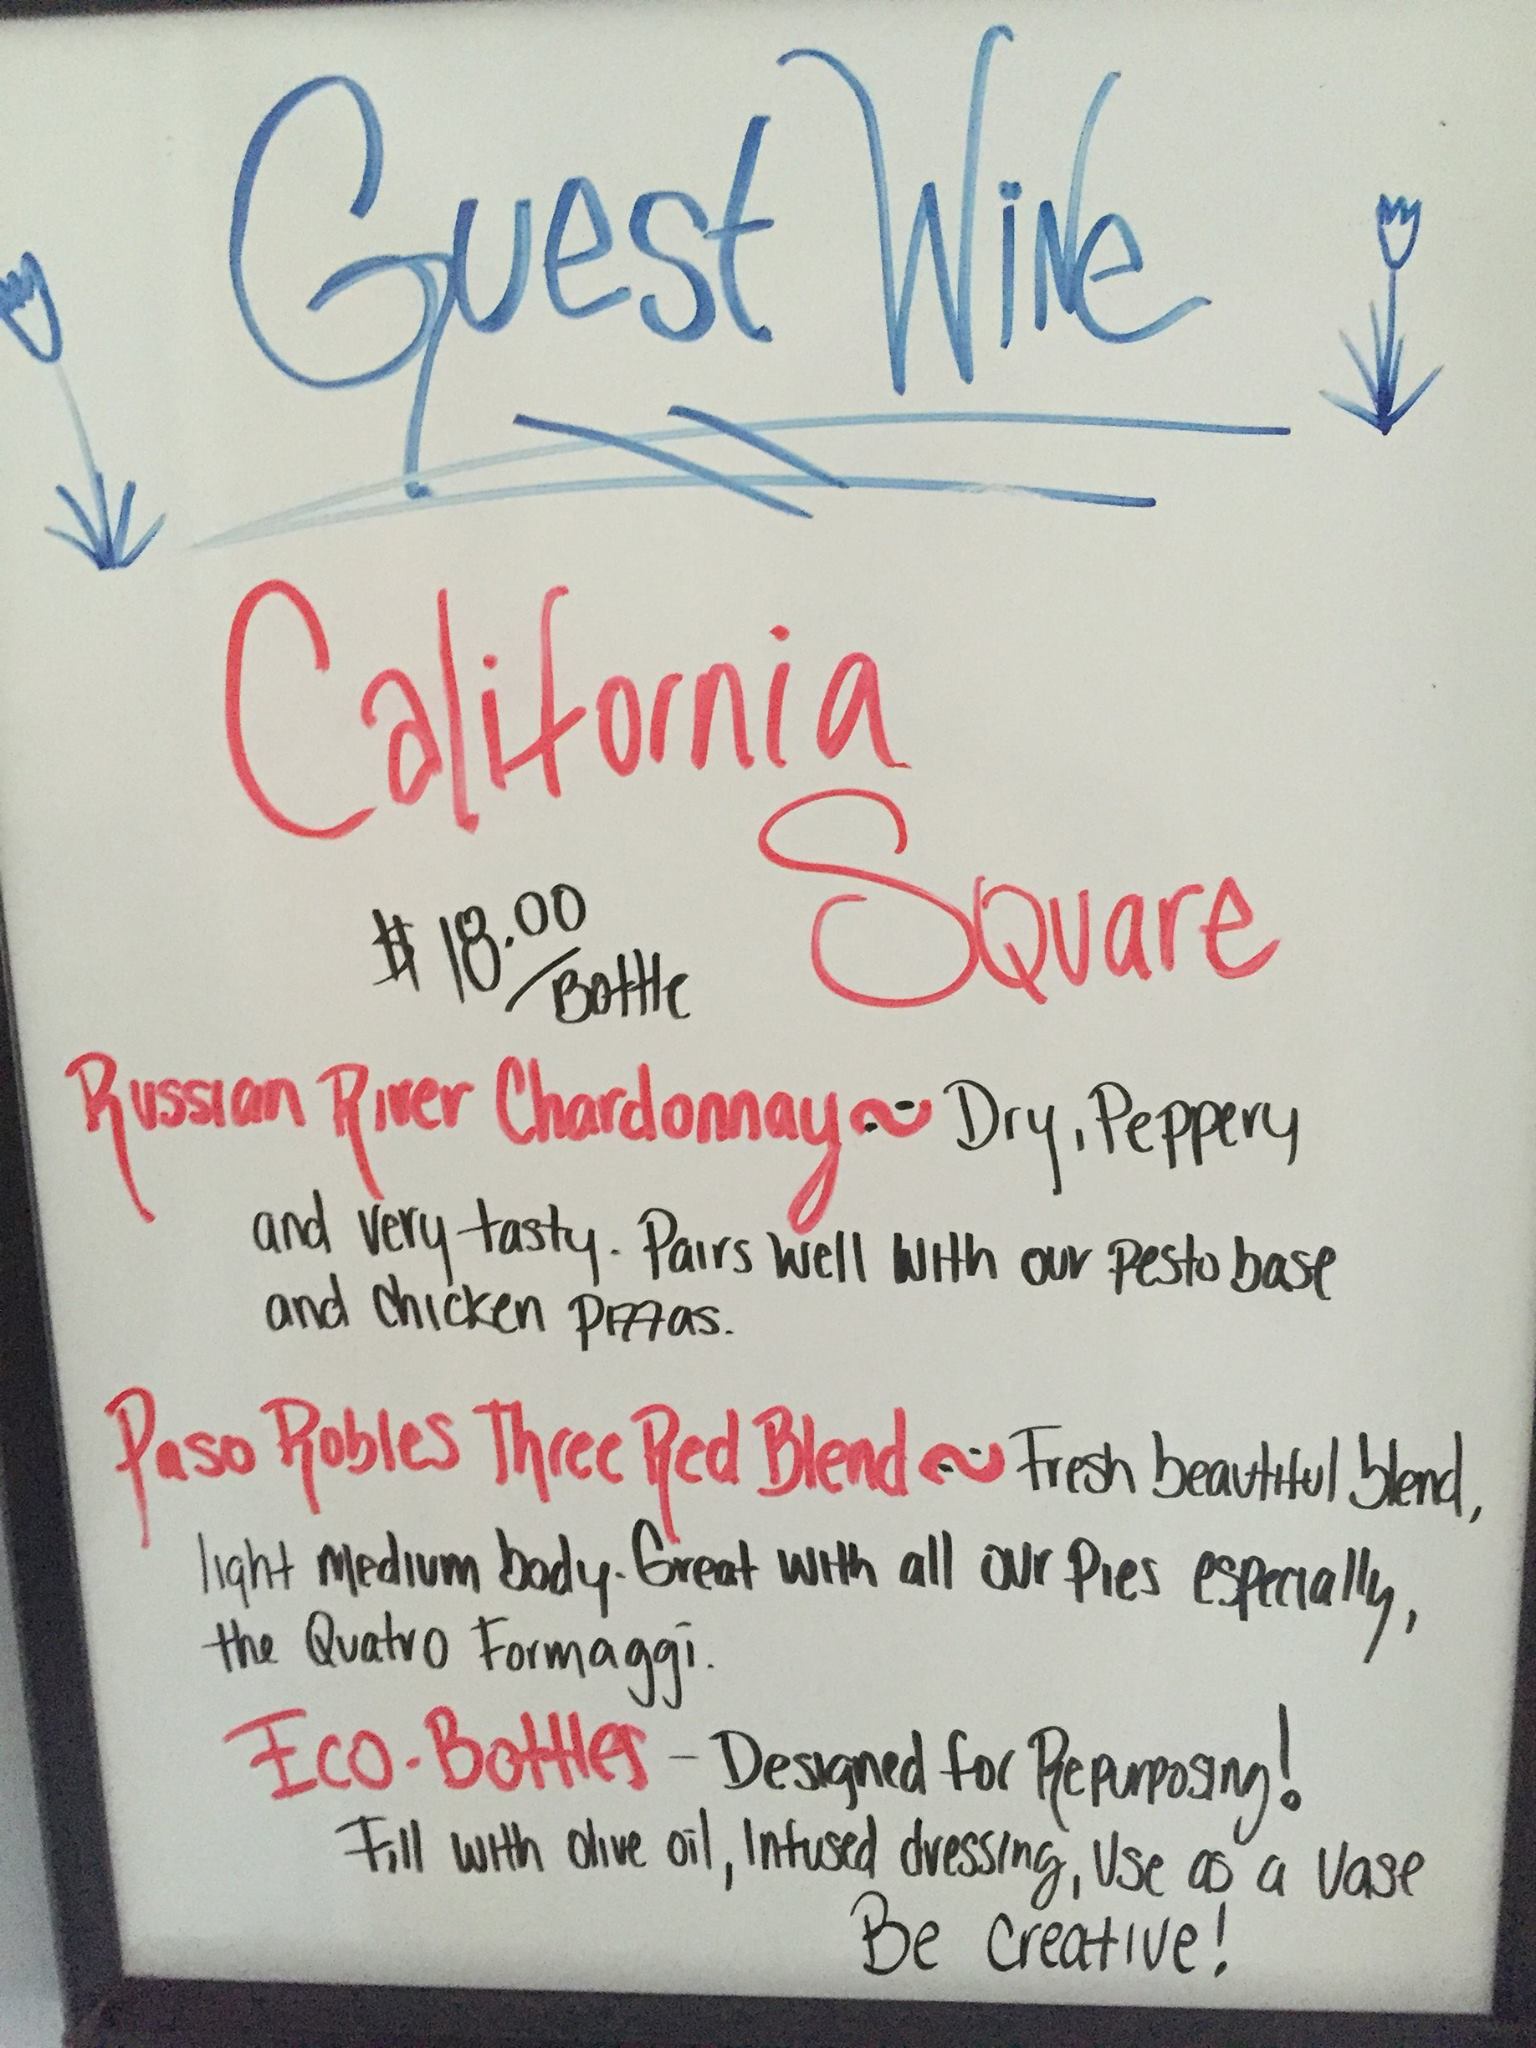 Guest Wine
California
Square
$18.00
/Bottle
Russian River Chardonnay ~ Dry, Peppery
and very tasty. Pairs well with our pesto base
and chicken pizzas.
Paso Robles Three Red Blend ~ Fresh beautiful blend,
light medium body. Great with all our Pies especially,
the Quatro Formaggi.
Eco-Bottles - Designed for Repurposing!
Fill with olive oil, Infused dressing, Use as a Vase
Be creative!